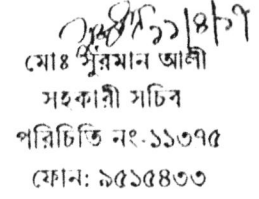 ১১/৪/১৭
মোঃ সুরমান আলী
সহকারী সচিব
পরিচিতি নং-১১৩৭৫
ফোন: ৯৫১৫৪৩৩